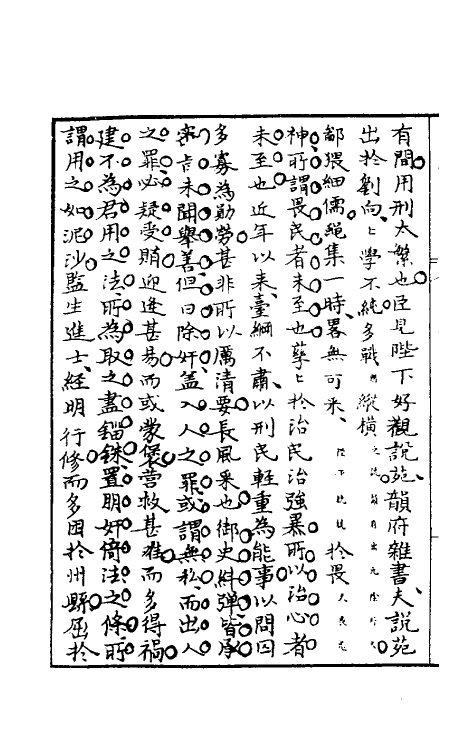 有間用刑太繁也臣見陛下好觀說苑韻府雜書夫說苑
出於劉向〻學不純多戰國縱橫之說韻府出元陰
鄙猥細儒繩集一時畧無可采陛下兢兢於畏天畏鬼
神所謂畏民者未至也孳〻於治民治強暴所以治心者
未至也近年以来臺綱不肅以刑民輕重為能事以問囚
多寡為勛勞甚非所以厲清要長風采也御史糾彈皆承
密旨未聞舉善但曰除奸蓋入人之罪或謂無私而出人
之罪必疑受賕迎逢甚易而或蒙褒營救甚难而多得禍
建不為君用之法所為取之盡錙銖置朋奸倚法之條所
謂用之如泥沙監生進士經明行修而多困於州縣屈於